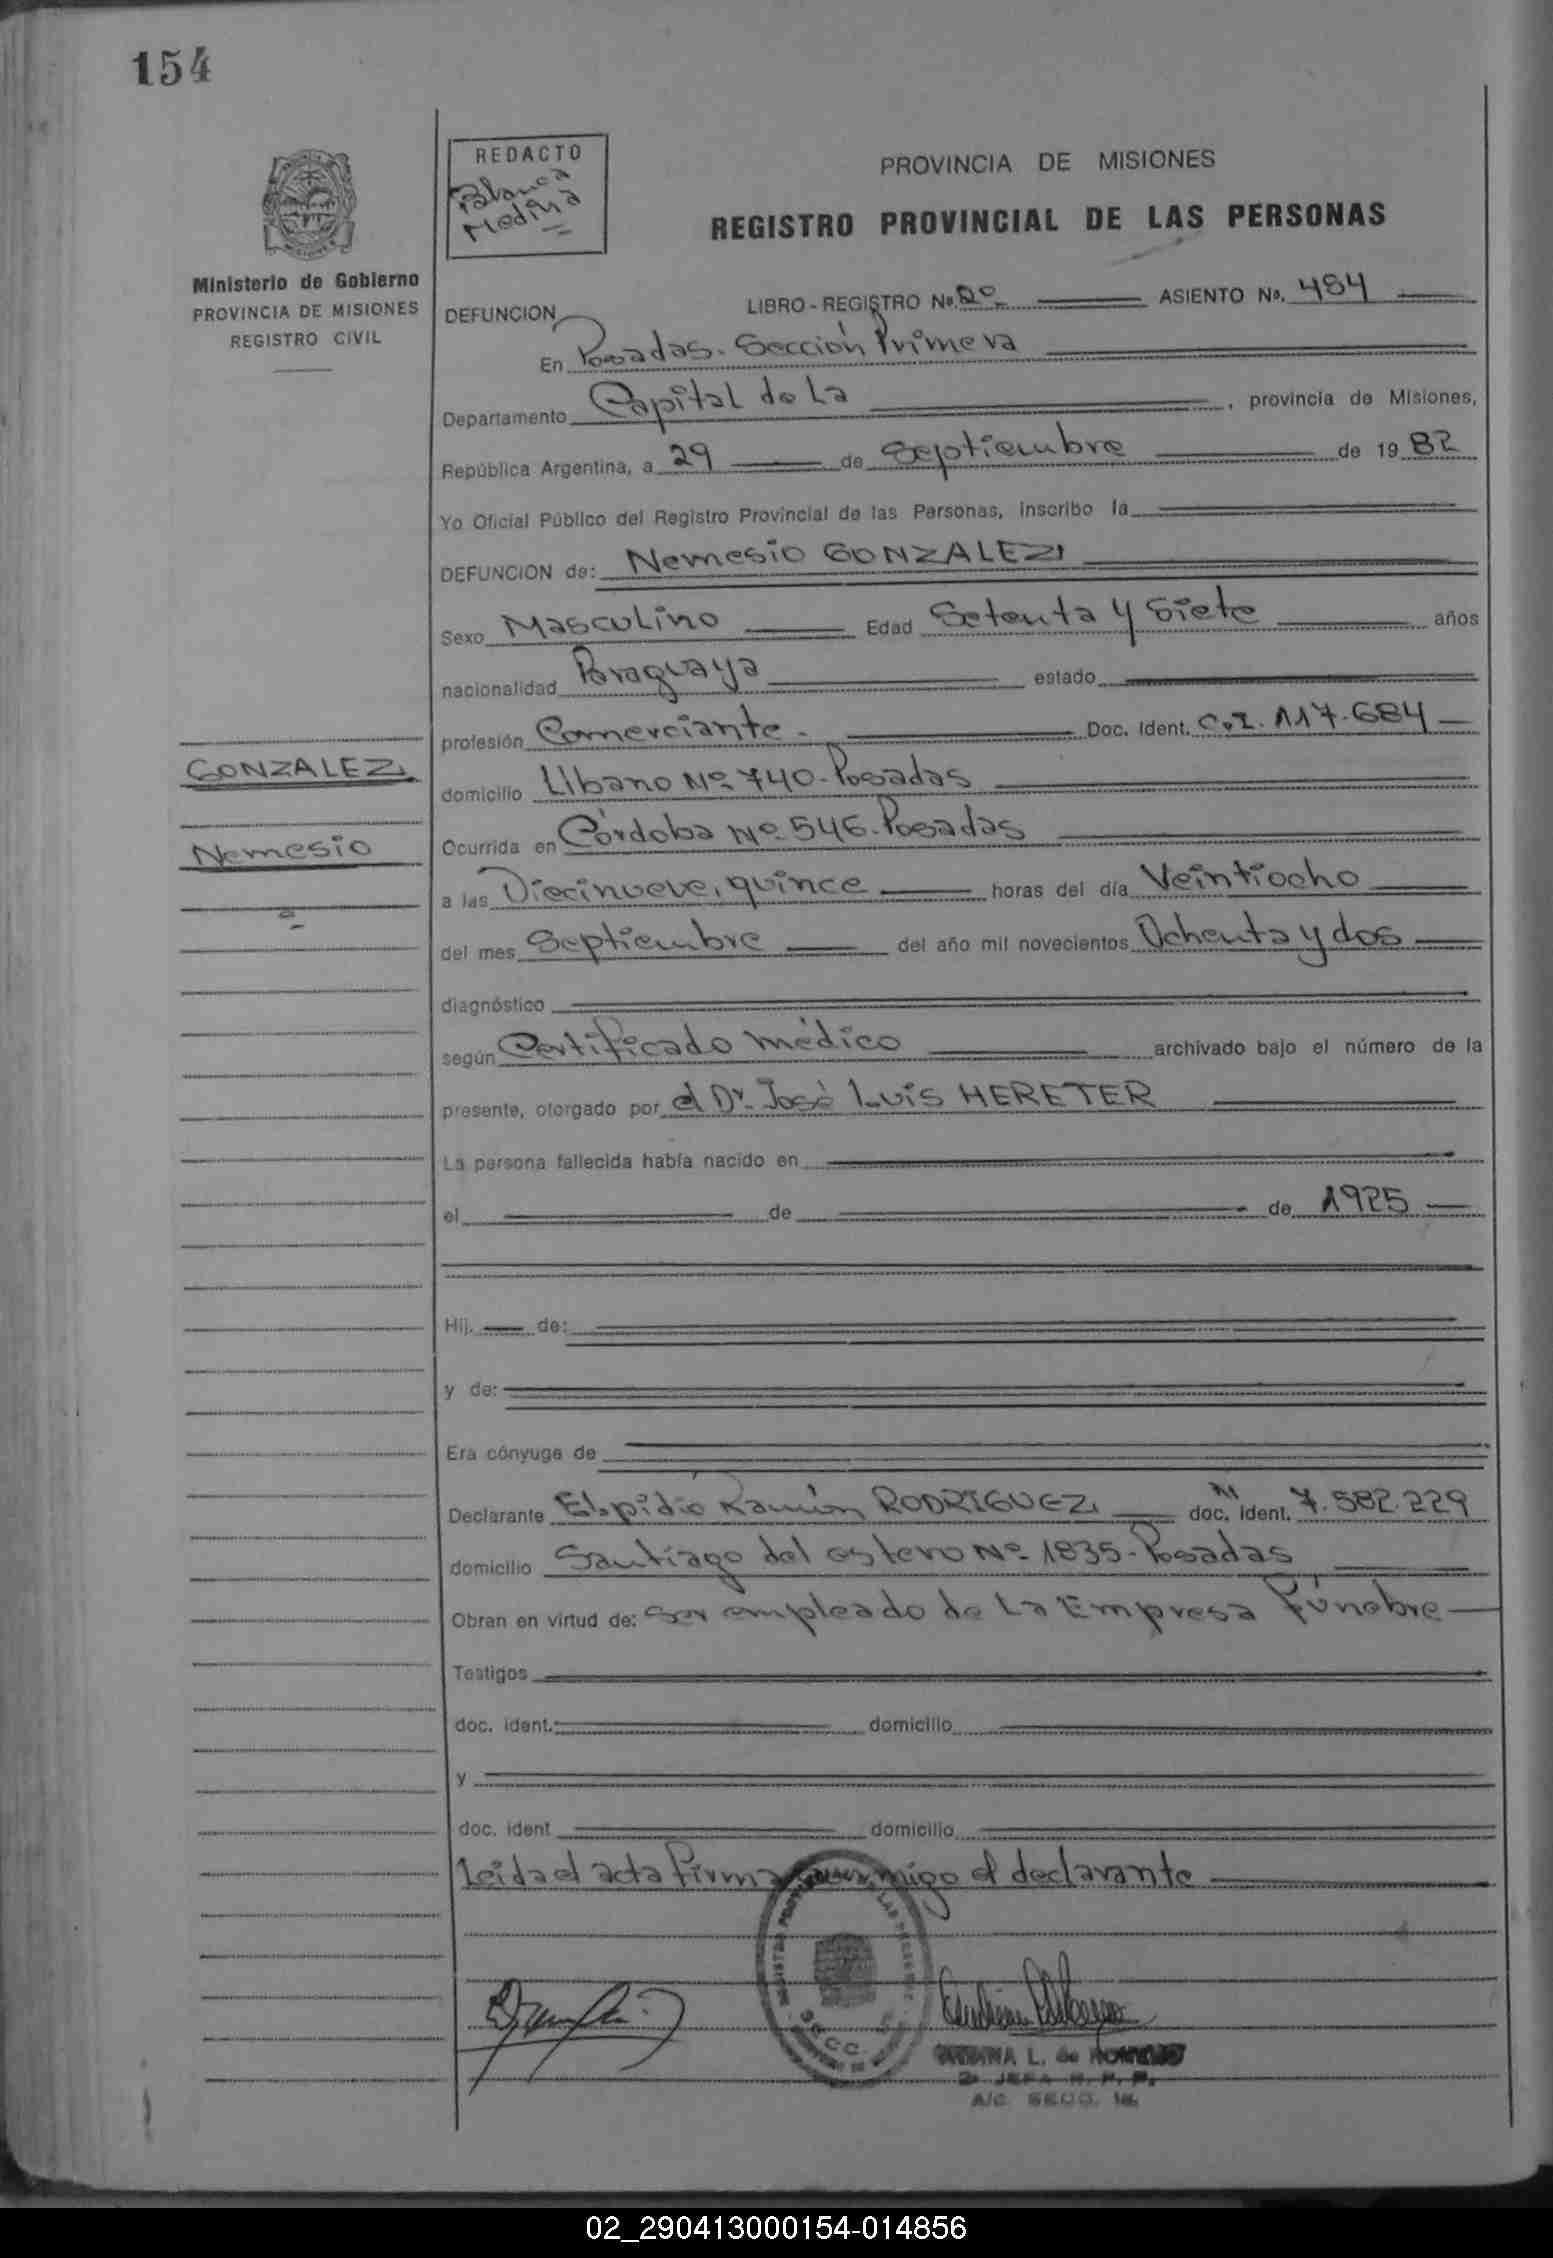 154
REDACTO
Blanca
Medina
PROVINCIA DE MISIONES
REGISTRO PROVINCIAL DE LAS PERSONAS
Ministerio de Gobierno
PROVINCIA DE MISIONES
REGISTRO CIVIL
LIBRO - REGISTRO No. 2º ASIENTO No. 484
DEFUNCION
En Posadas. Sección Primera
Departamento Capital de La, provincia de Misiones,
República Argentina, a 29 de Septiembre de 1982
Yo Oficial Público del Registro Provincial de las Personas, inscribo la
DEFUNCION de: Nemesio GONZALEZ
Sexo Masculino Edad Setenta y Siete años
nacionalidad Paraguaya estado
profesión Comerciante. Doc. Ident. C.I. 117.684
GONZALEZ
domicilio Líbano Nº 740-Posadas
Nemesio
Ocurrida en Córdoba Nº 546. Posadas
a las Diecinueve, quince horas del día Veintiocho
del mes Septiembre del año mil novecientos Ochenta y dos
diagnóstico
según Certificado médico archivado bajo el número de la
presente, otorgado por el Dr. José Luis HERETER
La persona fallecida había nacido en
el de de 1925
Hij. de:
y de:
Era cónyuge de
Declarante Elpidio Ramón RODRIGUEZ doc. Ident. M 7.582.229
domicilio Santiago del estero Nº 1835-Posadas
Obran en virtud de: Ser empleado de La Empresa Fúnebre
Testigos
doc. ident.: domicilio
y
doc. ident domicilio
Leida el acta firma conmigo el declarante
L. de
2ª JEFA R. P. P.
A/C SECC. 1a.
02_290413000154-014856